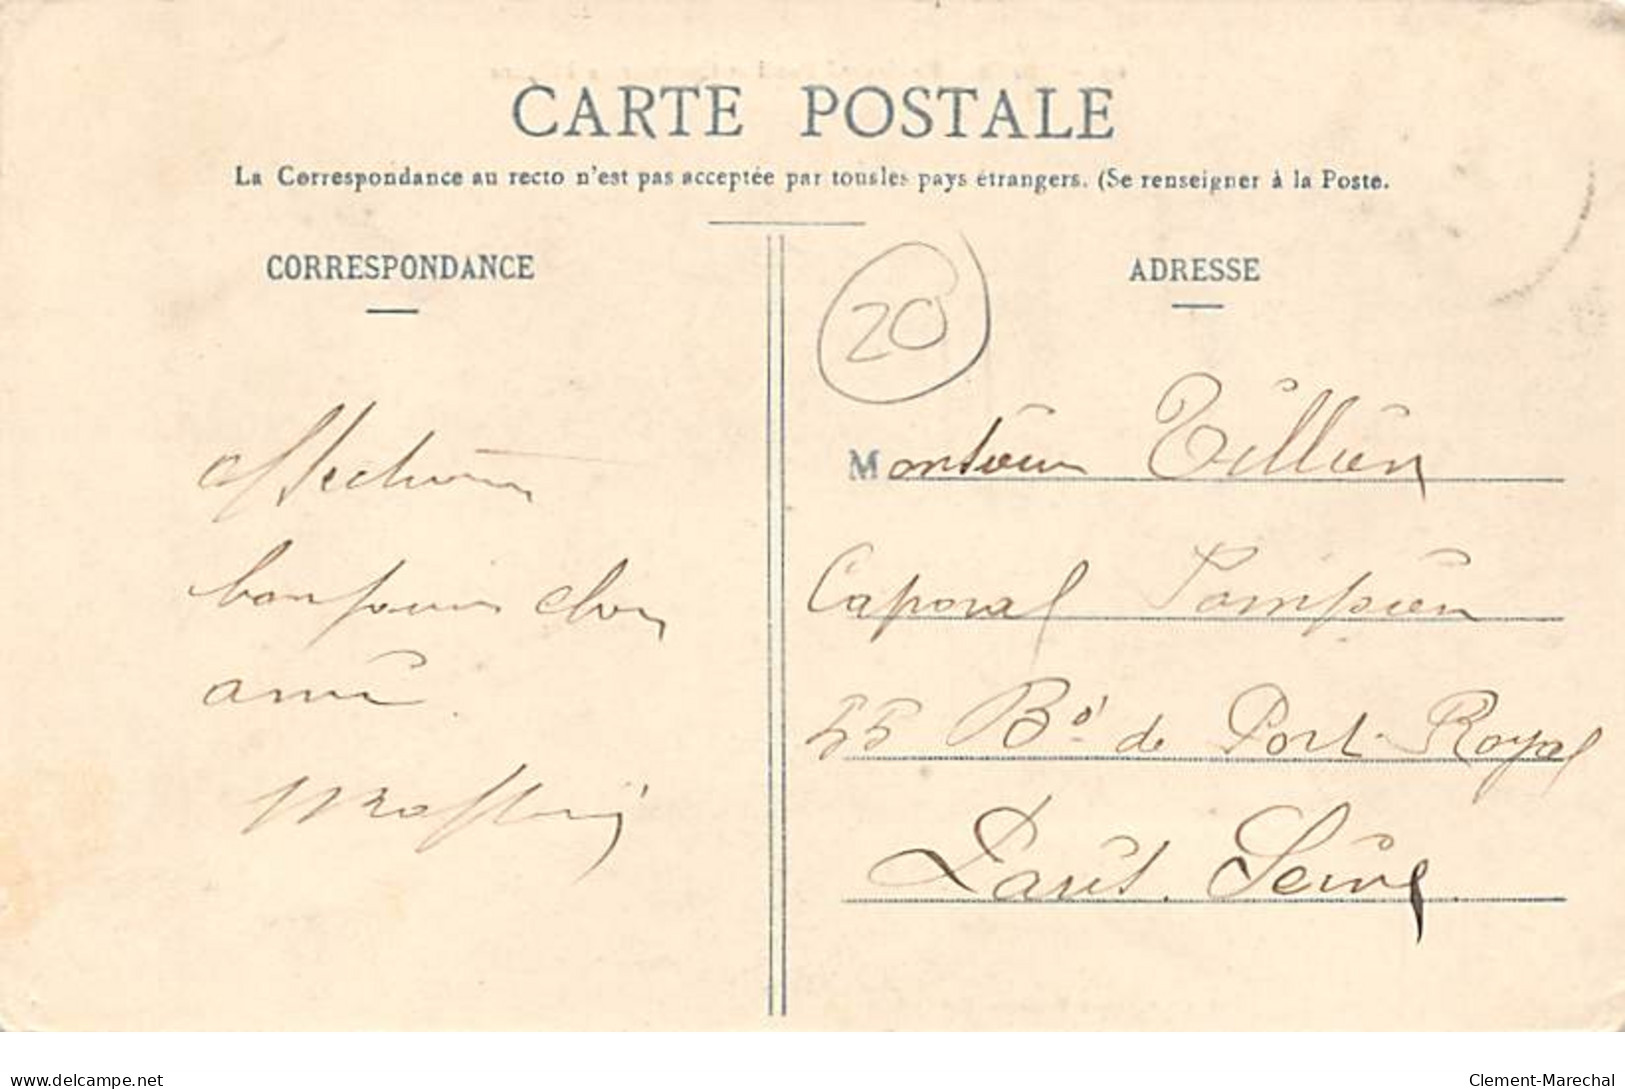 CARTE POSTALE
La Correspondance au recto n'est pas acceptée par tousles pays étrangers. (Se renseigner à la Poste.
CORRESPONDANCE
ADRESSE
20
Monsieur Tillier
Caporal Pompier
55 Bd de Port-Royal
Paris. Seine
Affectueux
bonjour cher
ami.
delcampe.net
Clement-Marechal